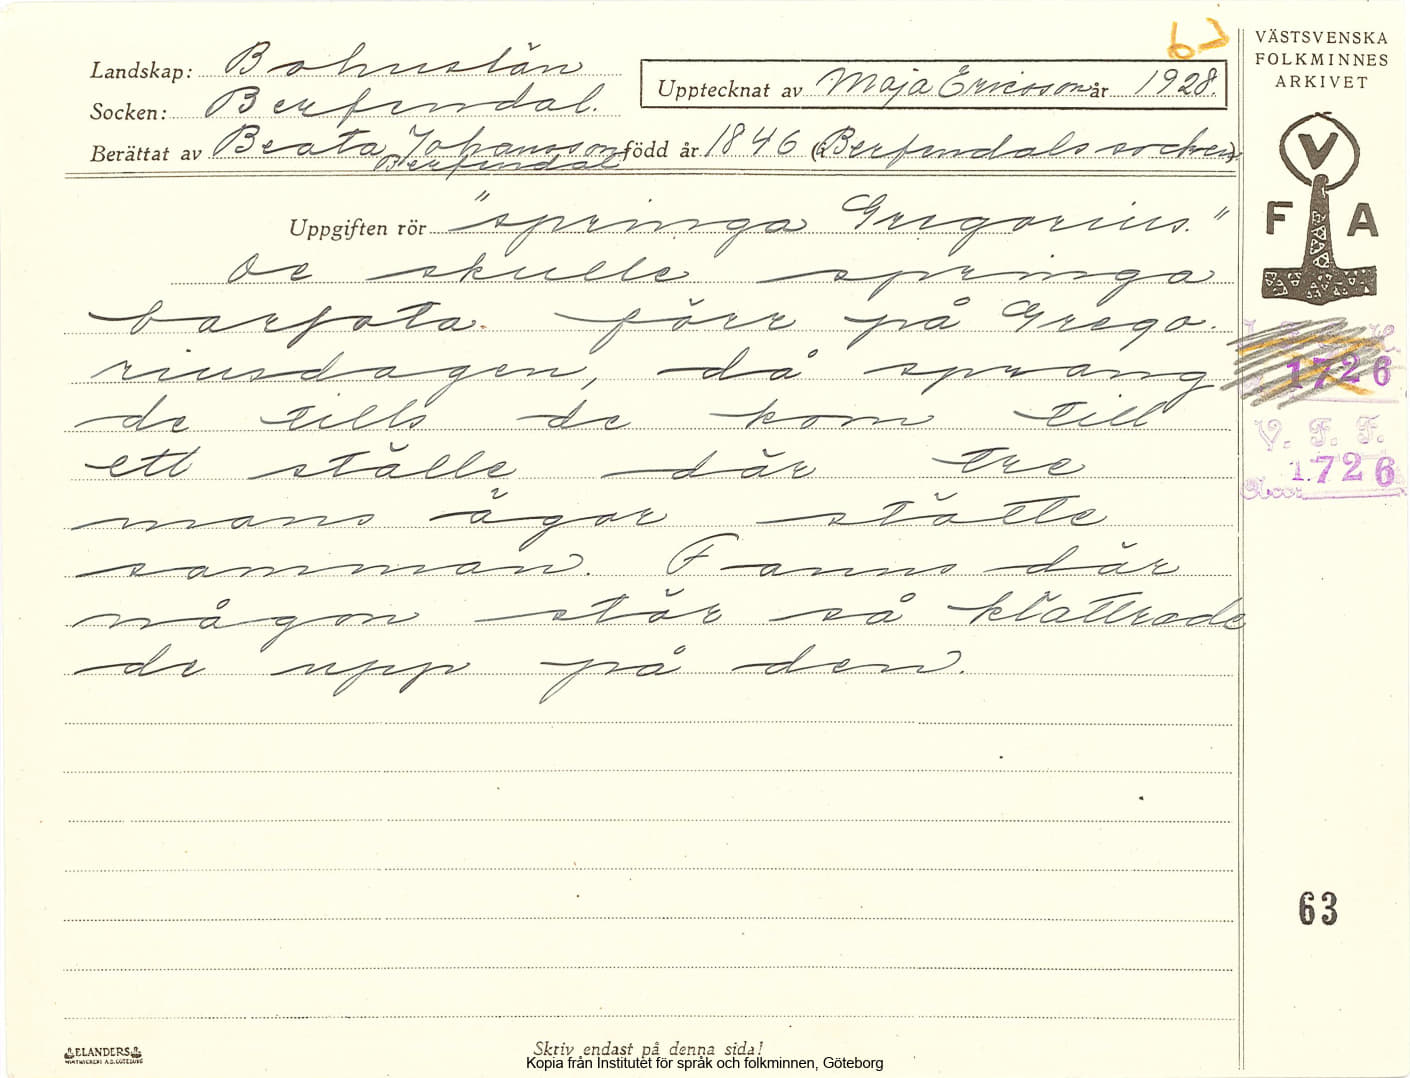 62
VÄSTSVENSKA
FOLKMINNES
ARKIVET
Landskap: Bohuslän
Upptecknat av Maja Ericsson år 1928.
Socken: Berfendal.
Berättat av Beata Johansson född år 1846 (i Berfendals socken)
Berfendal
V
F A
Uppgiften rör "springa Gregorius."
De skulle springa
barfota förr på Grego-
riusdagen, då sprang
de tills de kom till
ett ställe där tre
mans ägor stötte
samman. Fanns där
någon stör så klättrade
de upp på den.
1726
V. F. F.
1726
63
ELANDERS
Skriv endast på denna sida!
Kopia från Institutet för språk och folkminnen, Göteborg